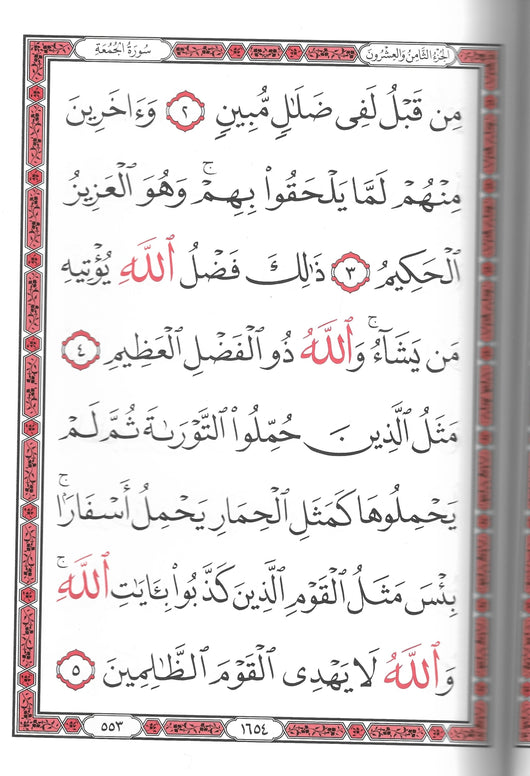 الجزء الثامن والعشرون
سورة الجمعة
مِن قَبْلُ لَفِى ضَلَـٰلٍ مُّبِينٍ ٢ وَءَاخَرِينَ
مِنْهُمْ لَمَّا يَلْحَقُوا۟ بِهِمْ ۚ وَهُوَ ٱلْعَزِيزُ
ٱلْحَكِيمُ ٣ ذَٰلِكَ فَضْلُ ٱللَّهِ يُؤْتِيهِ
مَن يَشَآءُ ۚ وَٱللَّهُ ذُو ٱلْفَضْلِ ٱلْعَظِيمِ ٤
مَثَلُ ٱلَّذِينَ حُمِّلُوا۟ ٱلتَّوْرَىٰةَ ثُمَّ لَمْ
يَحْمِلُوهَا كَمَثَلِ ٱلْحِمَارِ يَحْمِلُ أَسْفَارًۢا ۚ
بِئْسَ مَثَلُ ٱلْقَوْمِ ٱلَّذِينَ كَذَّبُوا۟ بِـَٔايَـٰتِ ٱللَّهِ ۚ
وَٱللَّهُ لَا يَهْدِى ٱلْقَوْمَ ٱلظَّـٰلِمِينَ ٥
١٦٥٤
٥٥٣